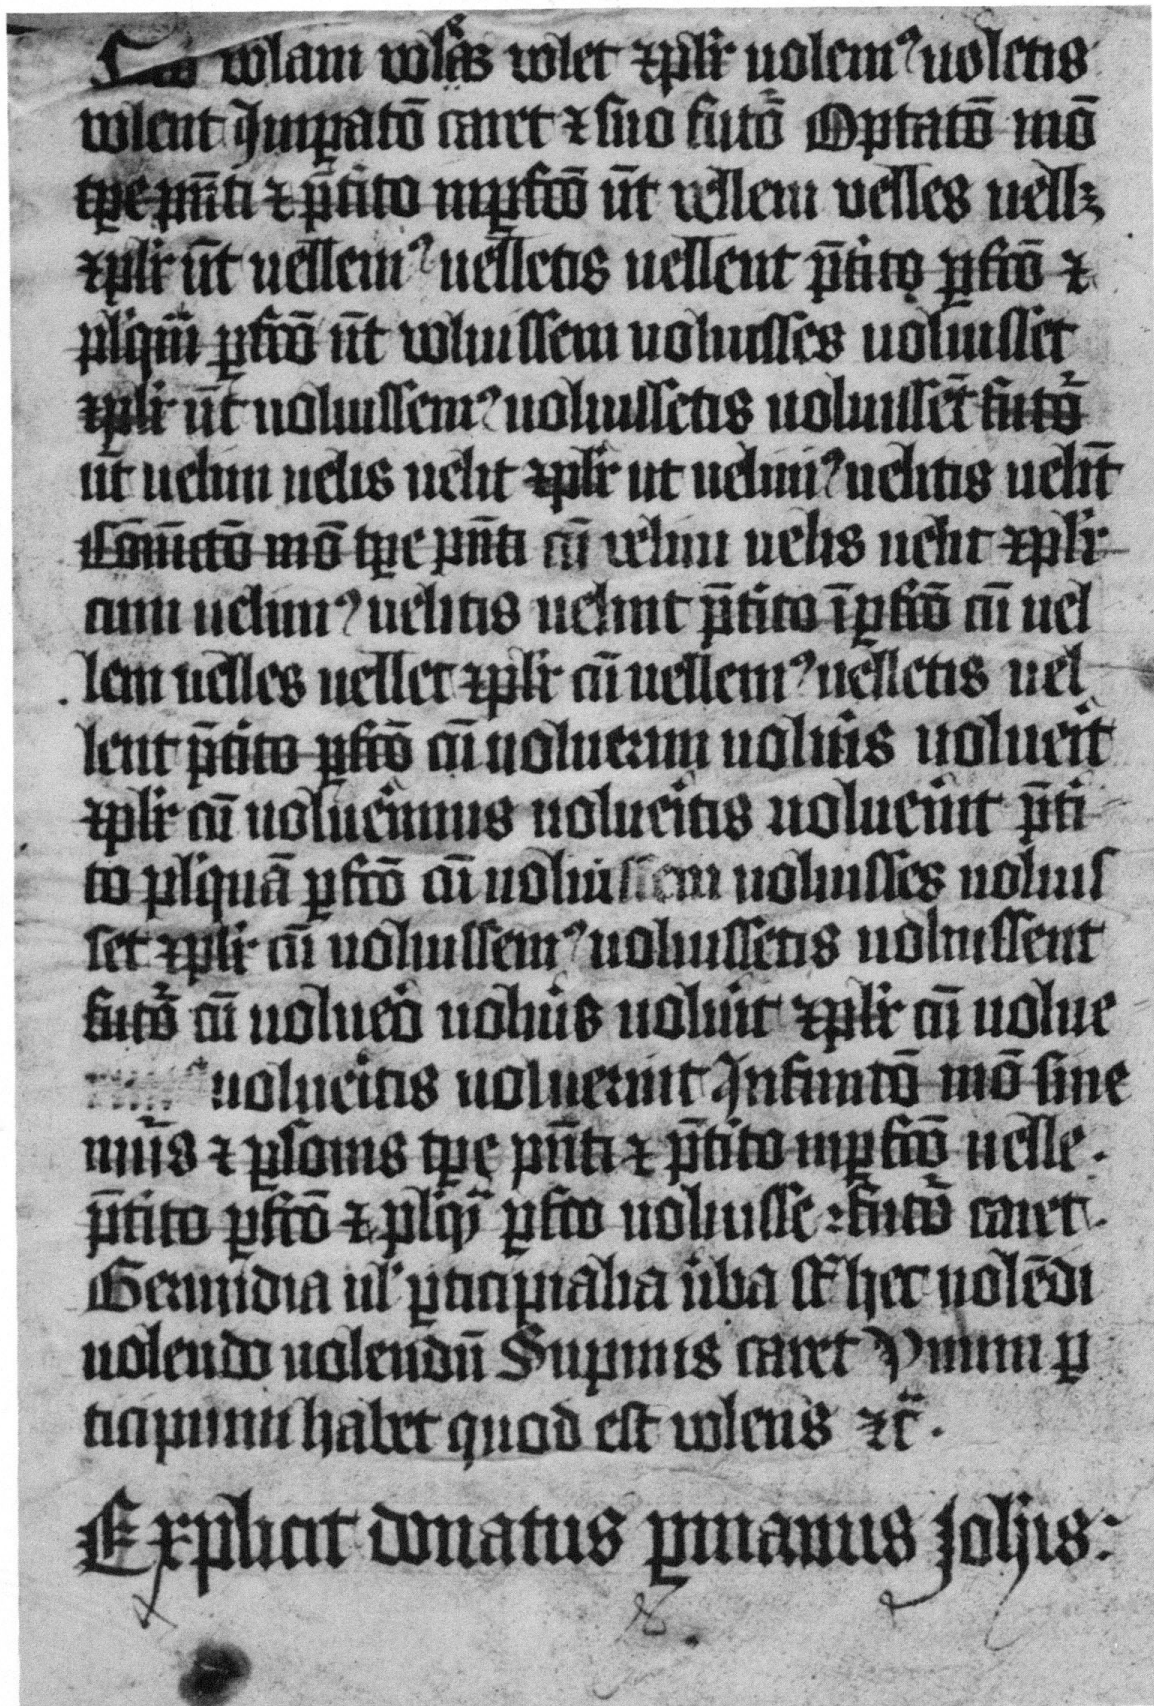 wlam wles wlet ⁊plr uolemꝰ uoletis
wlent Imꝑatō caret ⁊ suo futō Optatō mō
tꝑe pn̄ti ⁊ p̄tito inꝑfcō ūt wellem uelles uellꝫ
⁊plr ūt uellemꝰ uelletis uellent p̄tito ꝑfcō ⁊
plꝰqm̄ ꝑfcō ūt wluissem uoluisses uoluisset
⁊plr ūt uoluissemꝰ uoluissetis uoluissēt futō
ut uelim uelis uelit ⁊plr ut uelimꝰ uelitis uelīt
Cōiūctō mō tꝑe pn̄ti cū uelim uelis uelit ⁊plr
cum uelimꝰ uelitis uelint p̄tito īꝑfcō cū uel
lem uelles uellet ⁊plr cū uellemꝰ uelletis uel
lent p̄tito ꝑfcō cū uoluerim uoluis uolueit
⁊plr cū uolueimus uolueitis uolueint p̄ti
to plꝰquā ꝑfcō cū uoluissem uoluisses uoluis
set ⁊plr cū uoluissemꝰ uoluissetis uoluissent
futō cū uolueo uoluis uoluit ⁊plr cū uolue
uolueitis uoluerint Infinitō mō sine
nūis ⁊ ꝑsonis tꝑe pn̄ti ⁊ p̄tito inꝑfcō uelle.
p̄tito ꝑfcō ⁊ plꝰqꝫ ꝑfco uoluisse : futō caret.
Gerundia ul' ꝑticipialia ūba st̄ hec uolēdi
uolendo uolendū Supinis caret Vnum ꝑ
ticipium habet quod est wlens ⁊c̄.
Explicit donatus ꝑmanus Johis: